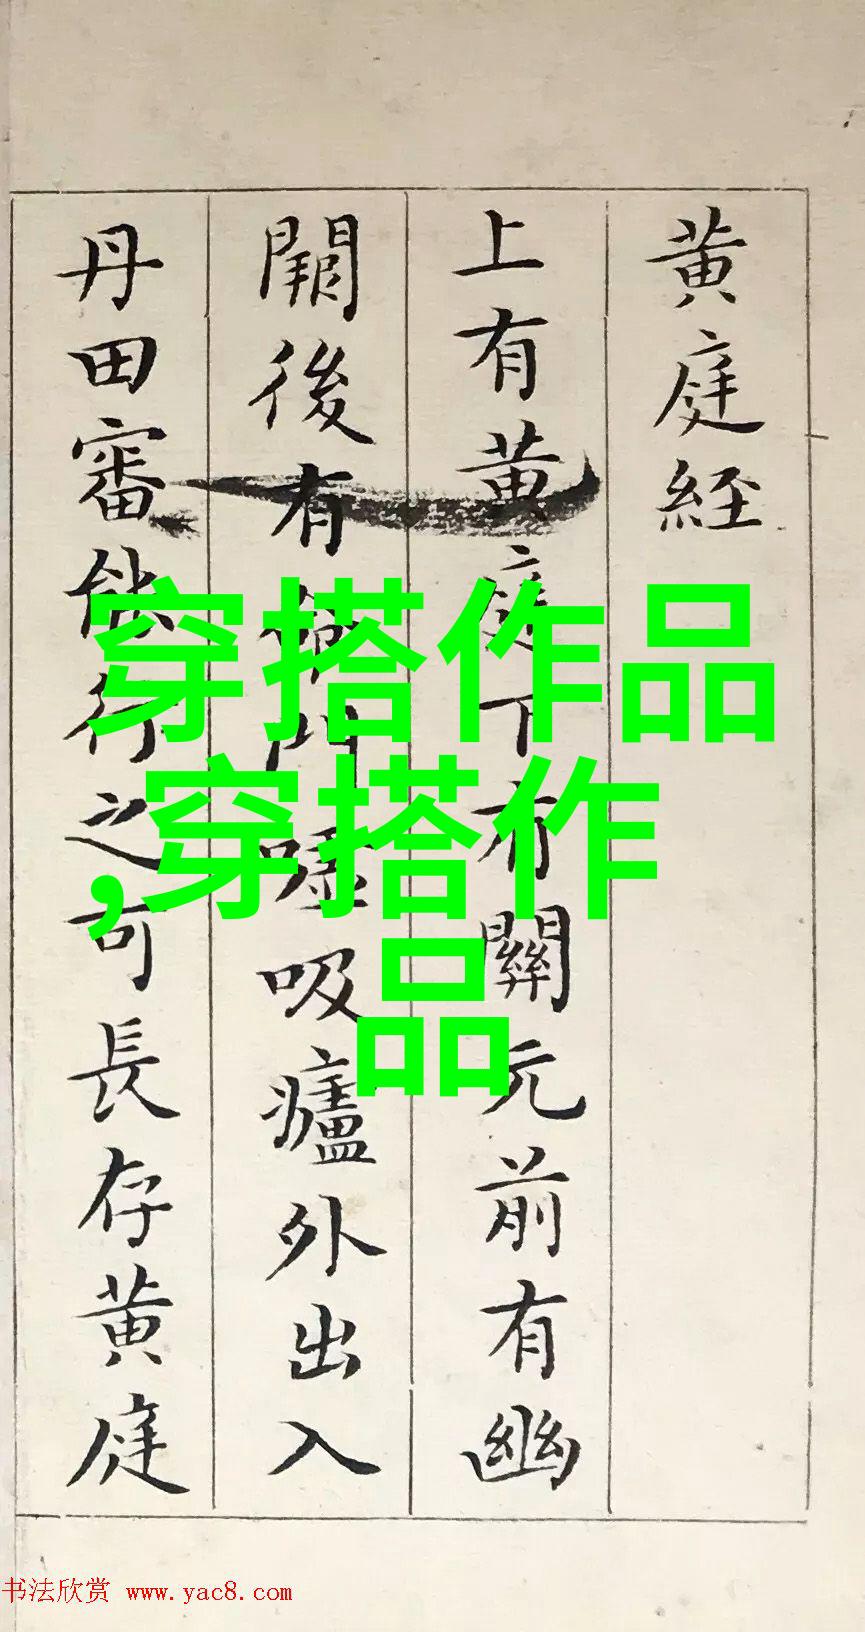 黄庭經
上有黄庭下有關元前有幽
闕後有命門嘘吸廬外出入
丹田審能行之可長存黄庭
穿搭作品
,穿搭作
品
书法欣赏 www.yac8.com